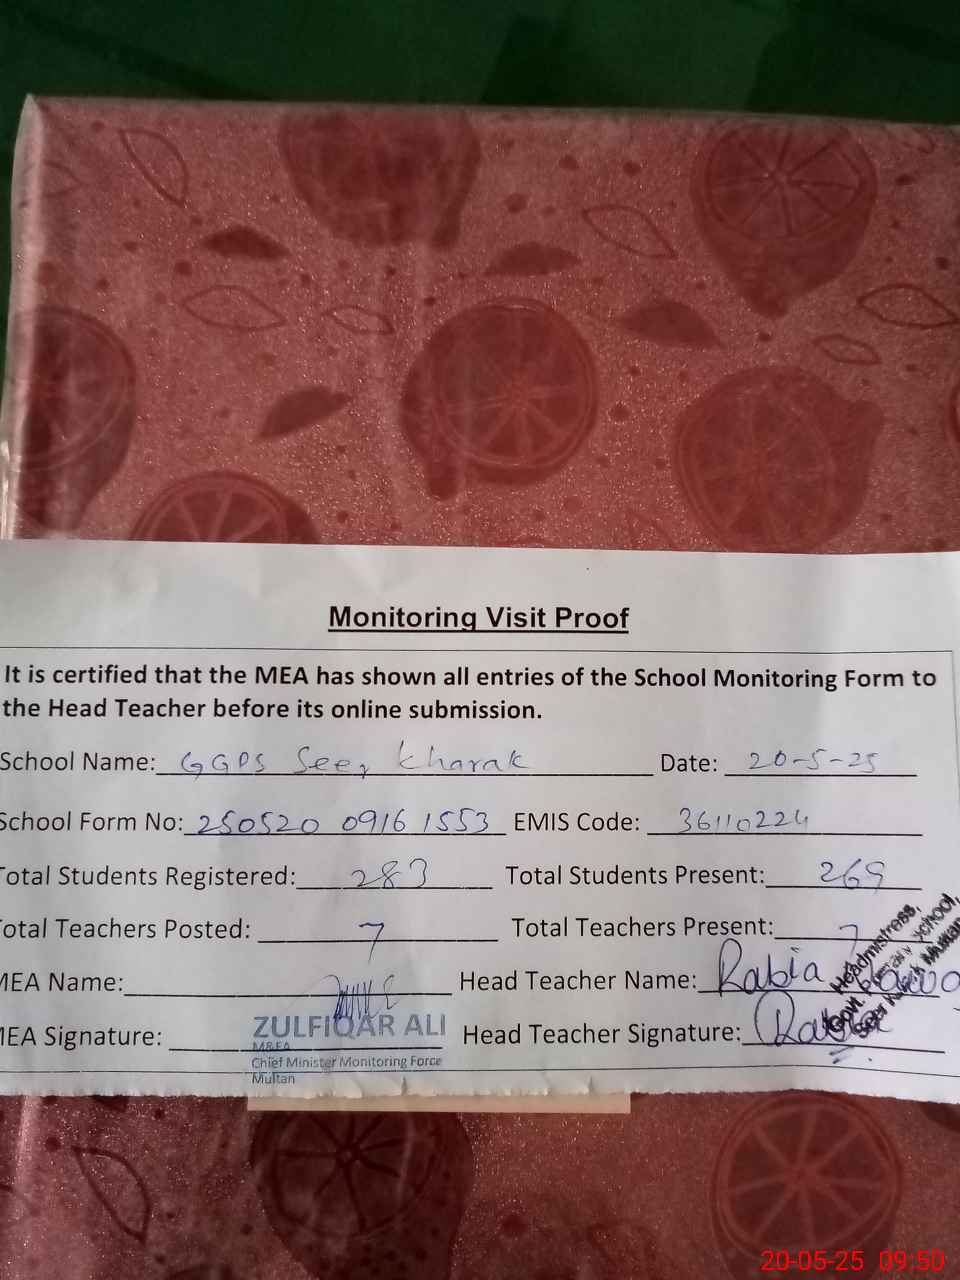 Monitoring Visit Proof
It is certified that the MEA has shown all entries of the School Monitoring Form to
the Head Teacher before its online submission.
School Name: GGPS Seer Kharak Date: 20-5-25
School Form No: 250520 0916 1553 EMIS Code: 36110224
Total Students Registered: 283 Total Students Present: 269
Total Teachers Posted: 7 Total Teachers Present: 7
MEA Name: Head Teacher Name: Rabia
MEA Signature: Head Teacher Signature:
ZULFIQAR ALI
M&EA
Chief Minister Monitoring Force
Multan
Headmistress,
Govt. Primary School,
Seer Multan
20-05-25 09:50